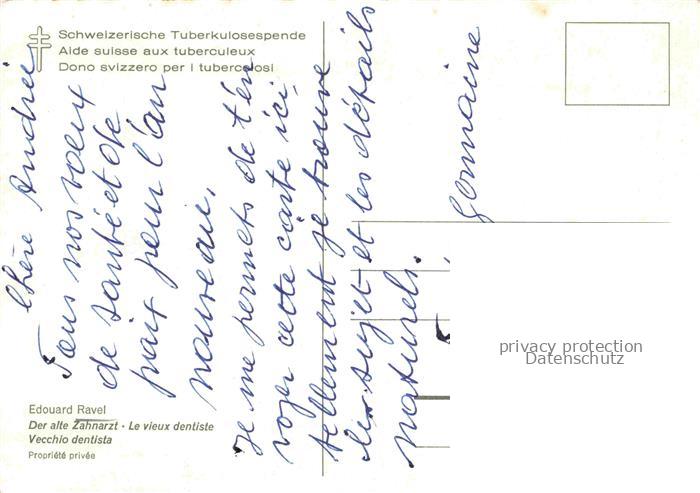 Schweizerische Tuberkulosespende
Aide suisse aux tuberculeux
Dono svizzero per i tubercolosi
Chère Andrée
Tous nos voeux
de santé et de
paix pour l'an
nouveau.
Je me permets de t'en
voyer cette carte ici,
tellement je trouve
le sujet et les détails
naturels.
Germaine
Edouard Ravel
Der alte Zahnarzt · Le vieux dentiste
Vecchio dentista
Propriété privée
privacy protection
Datenschutz